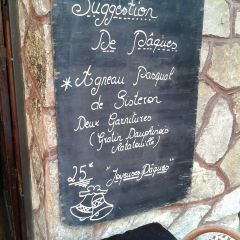 Suggestion
De Pâques
* Agneau Pasqual
de Sisteron
Deux Garnitures
( Gratin Dauphinois
Ratatouille )
25€ "Joyeuses Pâques"